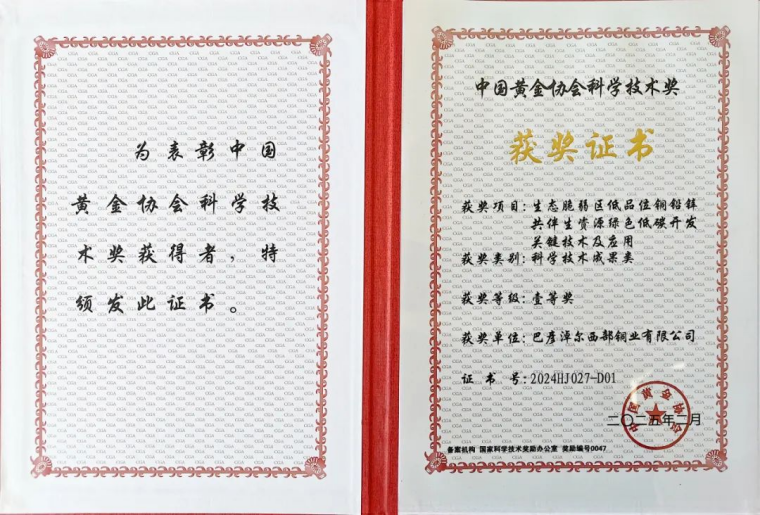 为表彰中国
黄金协会科学技
术奖获得者，特
颁发此证书。
中国黄金协会科学技术奖
获奖证书
获奖项目：生态脆弱区低品位铜铅锌
共伴生资源绿色低碳开发
关键技术及应用
获奖类别：科学技术成果类
获奖等级：壹等奖
获奖单位：巴彦淖尔西部铜业有限公司
证 书 号：2024HJ027-D01
中国黄金协会
二〇二五年二月
备案机构 国家科学技术奖励办公室 奖励编号0047